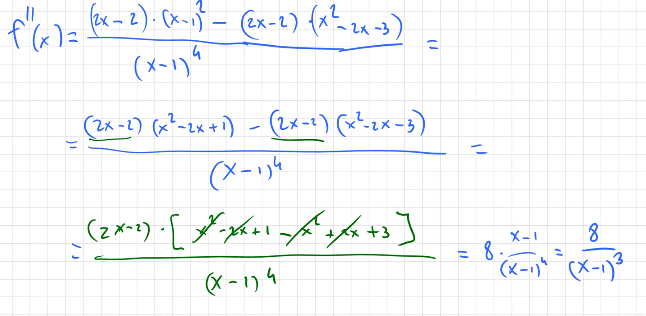 f''(x) = ((2x-2)·(x-1)^2 - (2x-2)·(x^2-2x-3))/((x-1)^4) =
= ((2x-2)(x^2-2x+1) - (2x-2)(x^2-2x-3))/((x-1)^4) =
= ((2x-2)·[x^2-2x+1-x^2+2x+3])/((x-1)^4) = 8·(x-1)/((x-1)^4) = 8/((x-1)^3)